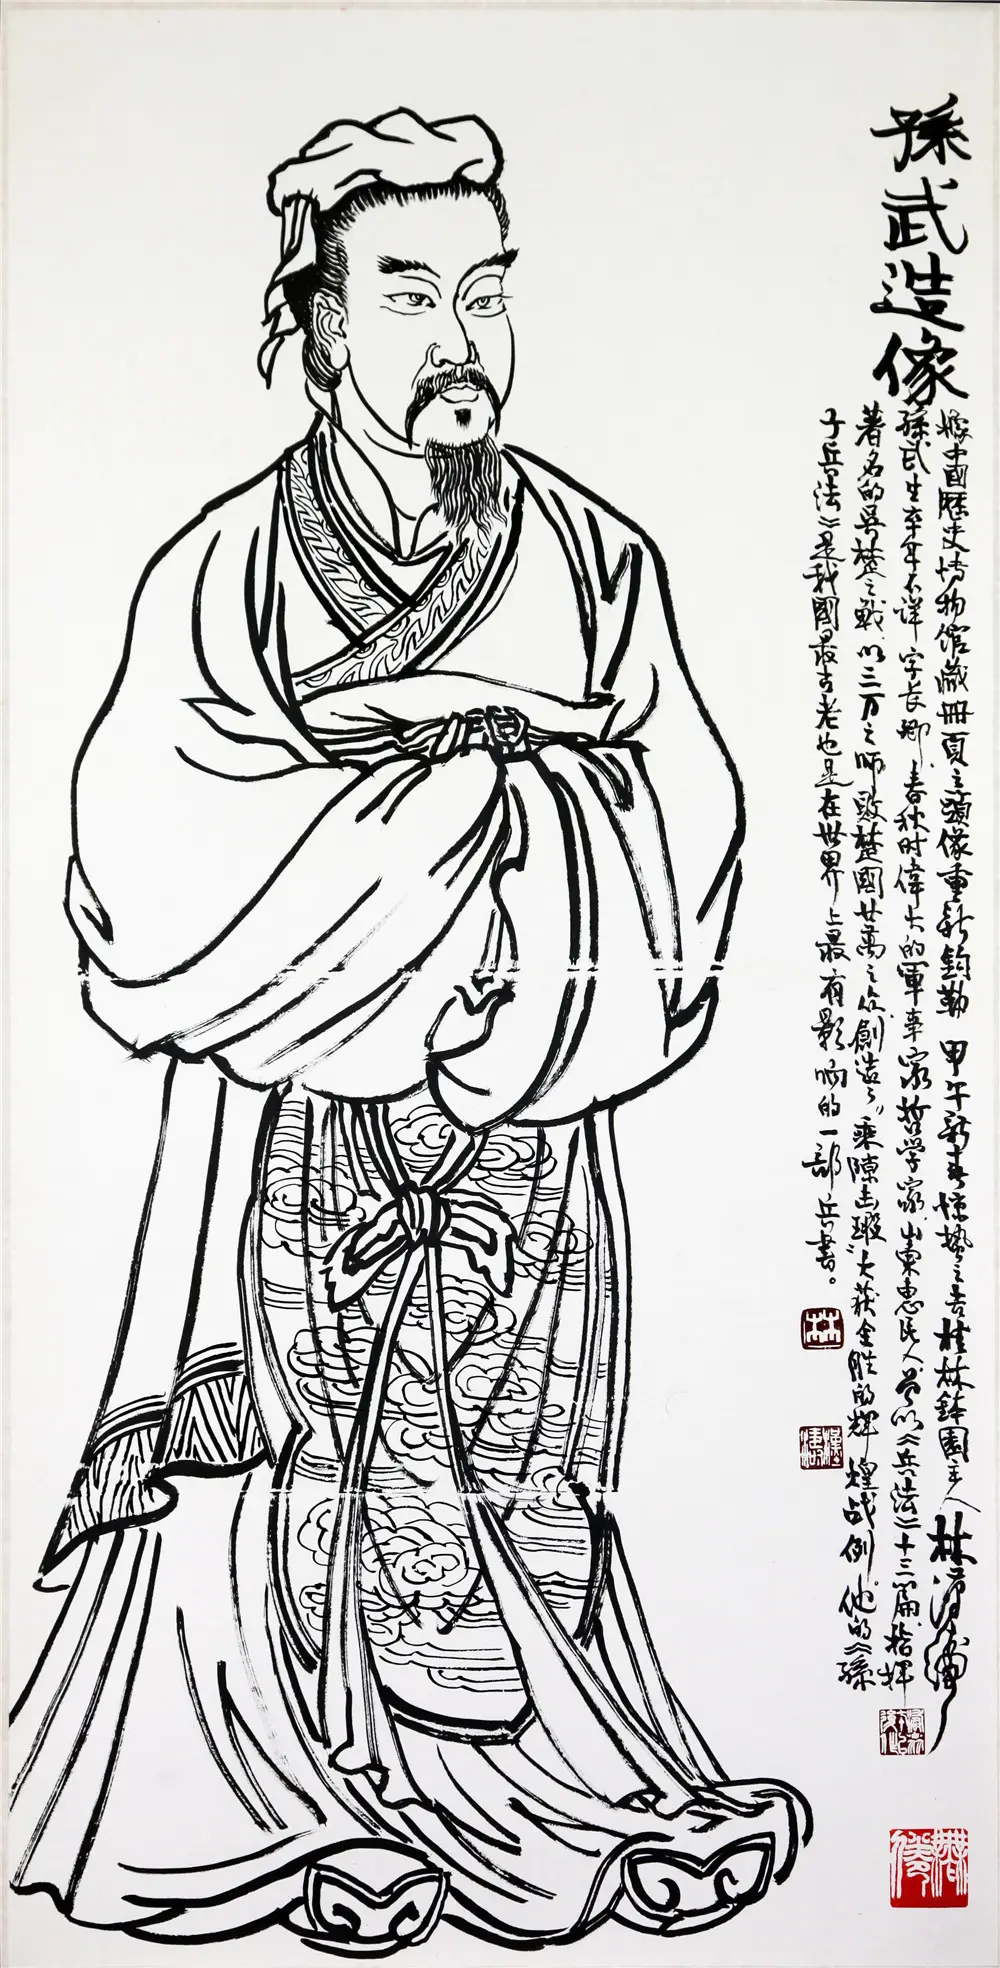 孫武造像
據中國歷史博物館藏冊頁之頭像重新鈎勒 甲午新春惊蟄之吉桂林鉢園主人林漢濤
孫武生卒年不詳 字長卿 春秋时偉大的軍事家哲学家 山東惠民人 曾以《兵法》十三篇 指揮
著名的吳楚之戰 以三万之師敗楚國廿萬之众 創造了“乘隙击瑕”大获全胜的輝煌战例 他的《孫
子兵法》是我國最古老也是在世界上最有影响的一部兵書。
林
漢濤